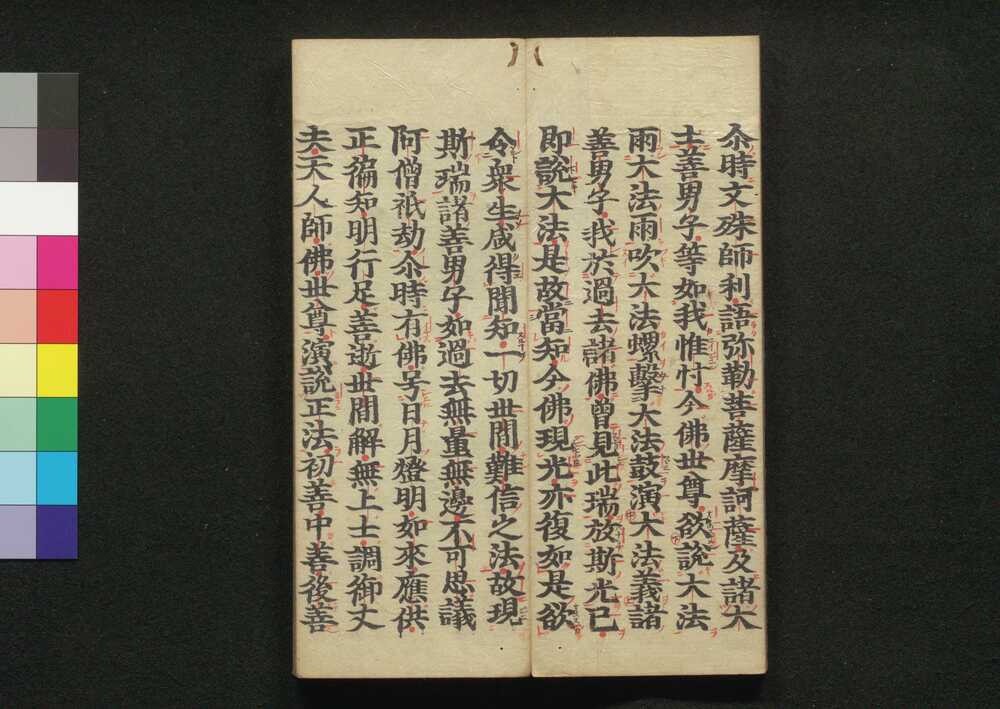 尒時文殊師利語弥勒菩薩摩訶薩及諸大
士善男子等如我惟忖今佛世尊欲說大法
雨大法雨吹大法螺擊大法鼓演大法義諸
善男子我於過去諸佛曾見此瑞放斯光已
即說大法是故當知今佛現光亦復如是欲
令衆生咸得聞知一切世間難信之法故現
斯瑞諸善男子如過去無量無邊不可思議
阿僧祇劫尒時有佛号日月燈明如來應供
正徧知明行足善逝世間解無上士調御丈
夫天人師佛世尊演說正法初善中善後善